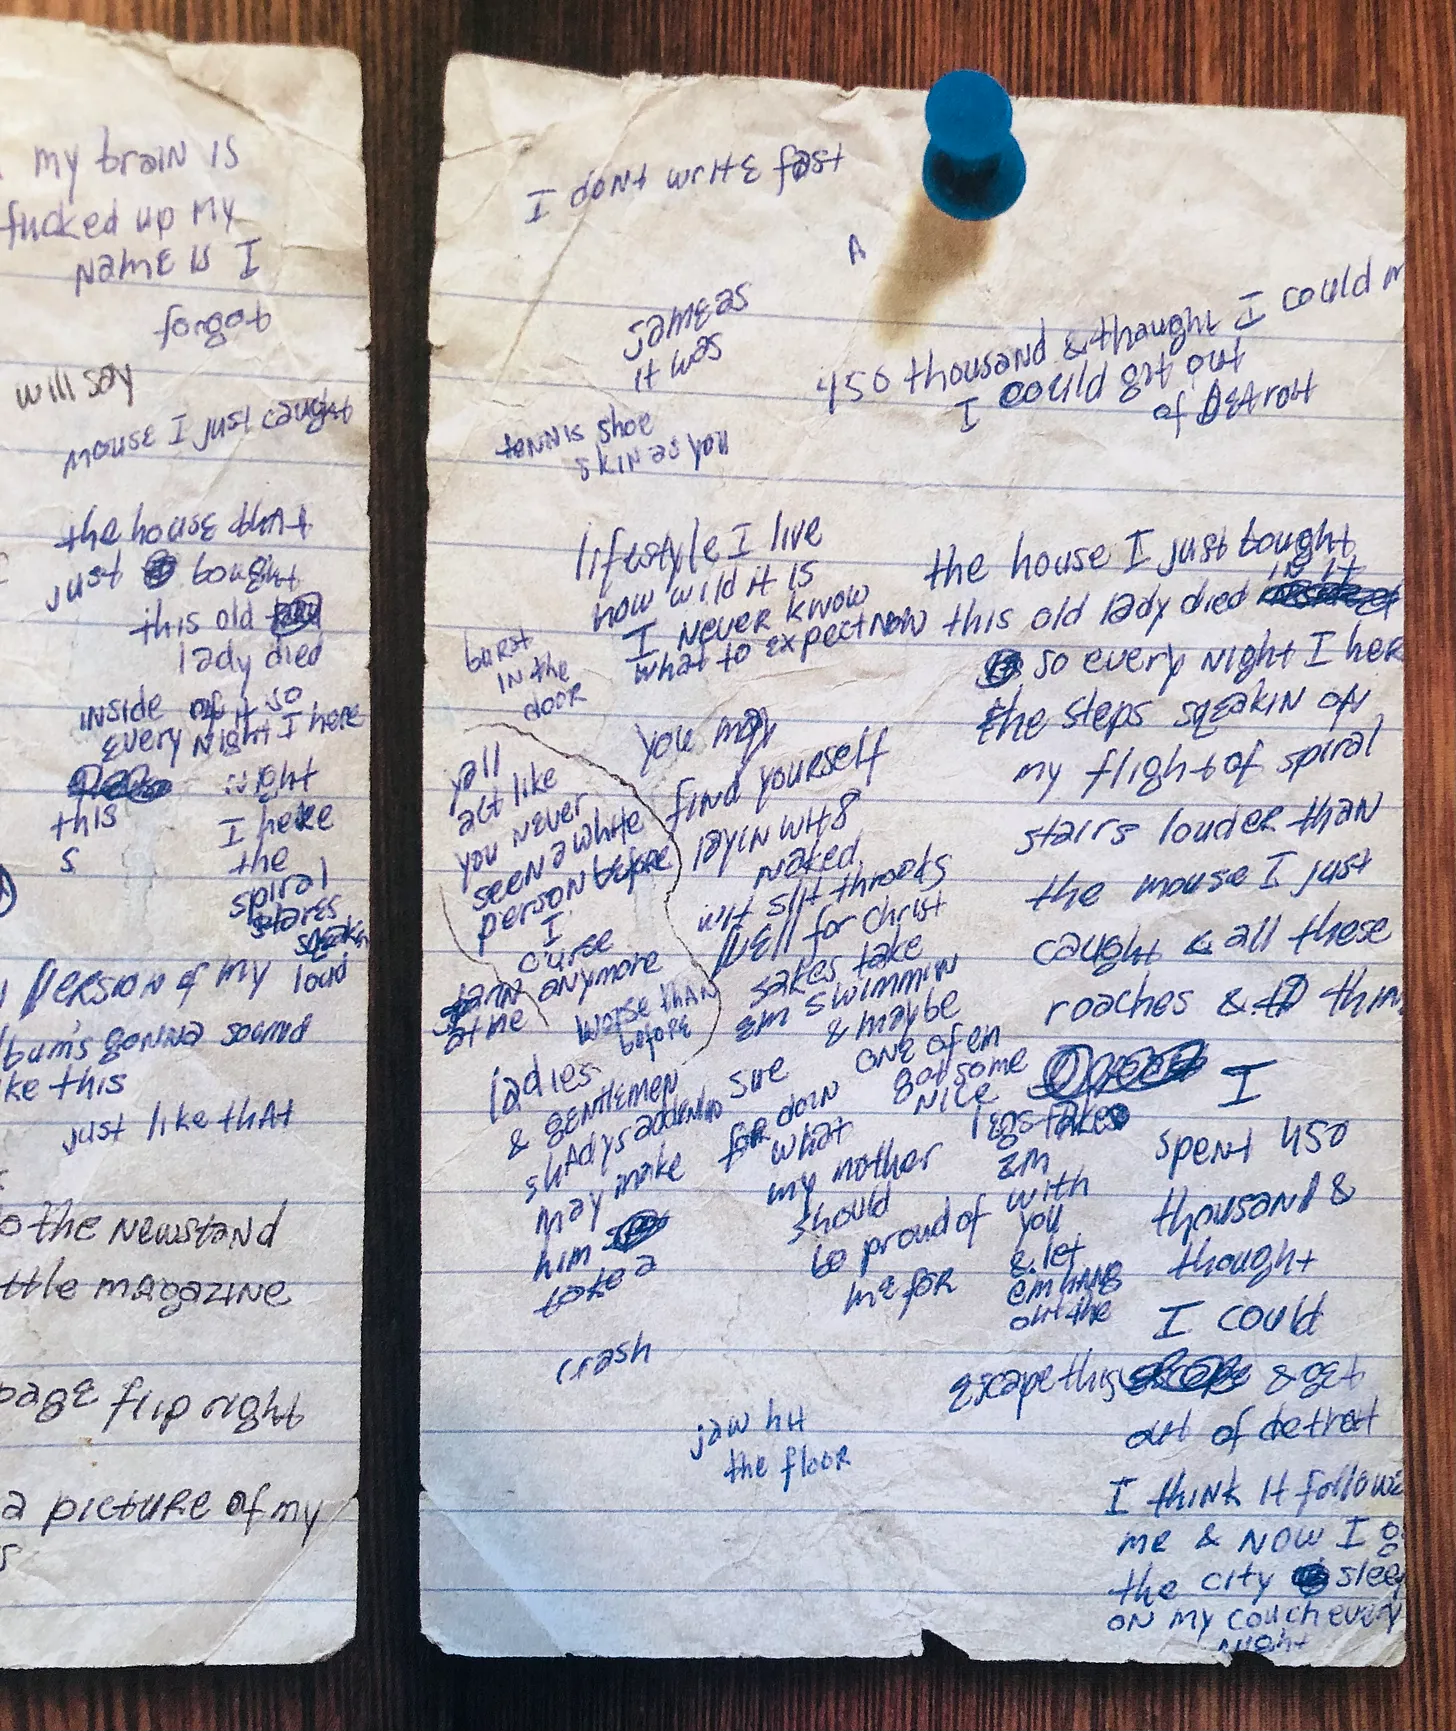 my brain is
fucked up my
name is I
forgot
will say
mouse I just caught
the house that
just bought
this old
lady died
inside of it so
every night I here
night
this
I here
s
the
spiral
stares
squeakn
person of my loud
bum's gonna sound
ke this
just like that
o the newstand
ttle magazine
page flip right
a picture of my
s
I dont write fast
A
same as
it was
tennis shoe
skin as you
450 thousand & thaught I could
I could get out
of Detroit
lifestyle I live
how wild it is
I never know
what to expect now
burst
in the
door
yall
act like
you never
seen a white
person before
I
curse
anymore
at me
worse than
before
you may
find yourself
layin wit 8
naked
wit slit throats
well for christ
sakes take
em swimmin
& maybe
one of em
got some
nice
legs take
em
with
you
& let
em hang
out the
ladies
& gentlemen
shadys addendio
may make
him
take a
crash
sue
for doin
what
my mother
should
be proud of
me for
jaw hit
the floor
the house I just bought
this old lady died in it
so every night I her
the steps sqeakin of
my flight of spiral
stairs louder than
the mouse I just
caught & all these
roaches & to thin
I
spent 450
thousand &
thought
I could
escape this & get
out of detroit
I think it followe
me & now I g
the city slee
on my couch every
night